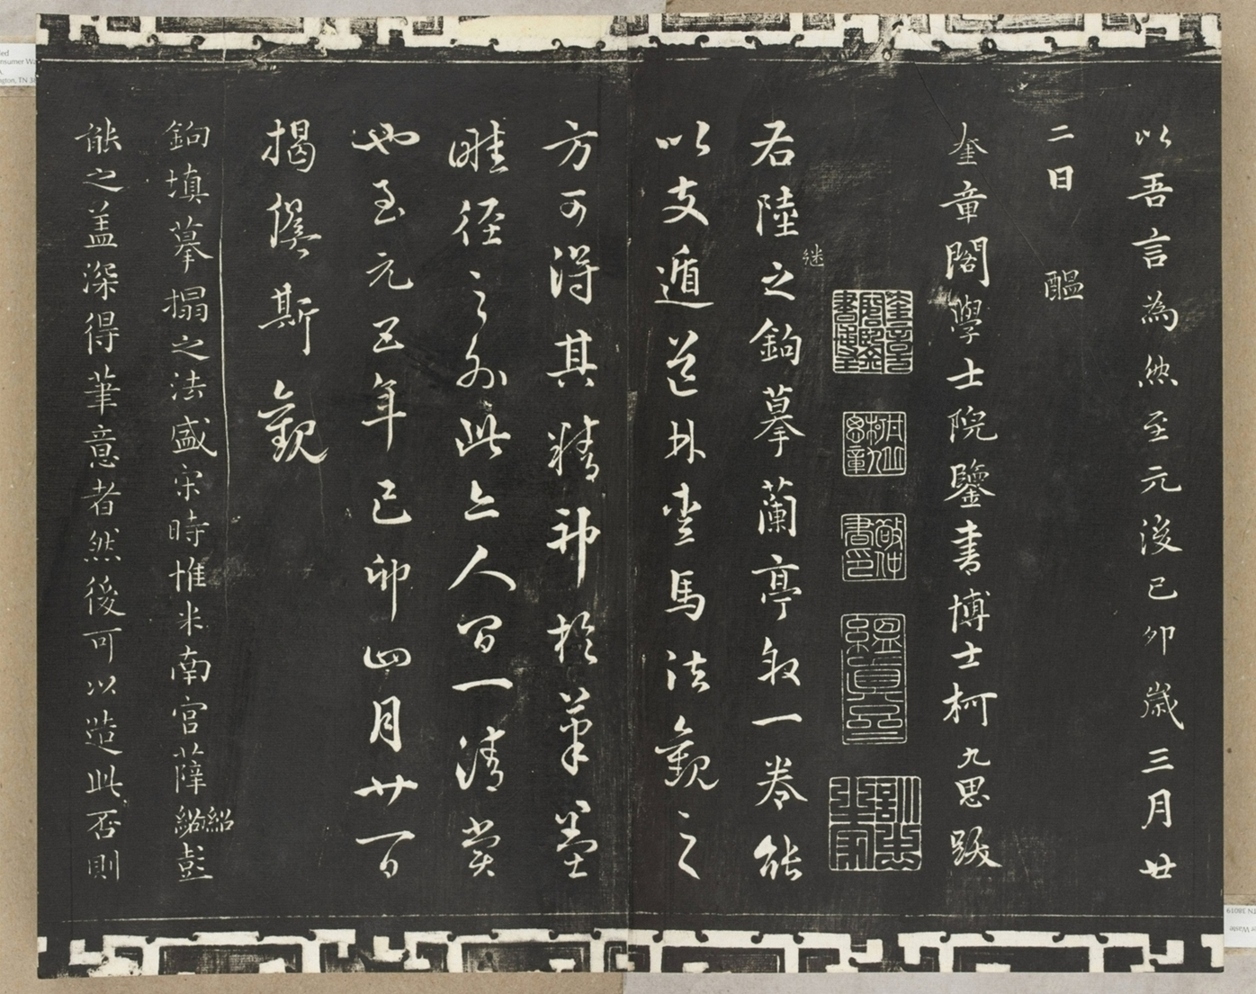 以吾言為然至元後己卯歲三月廿
二日 醖
奎章閣學士院鑒書博士柯九思跋
右陸継之鉤摹蘭亭敘一卷能
以支遁道林愛馬法觀之
方可得其精神於筆墨
畦徑之外此亦人間一清賞
也至元五年己卯四月廿一日
揭傒斯觀
鉤填摹搨之法盛宋時惟米南宮薛紹彭
能之盖深得筆意者然後可以造此否則